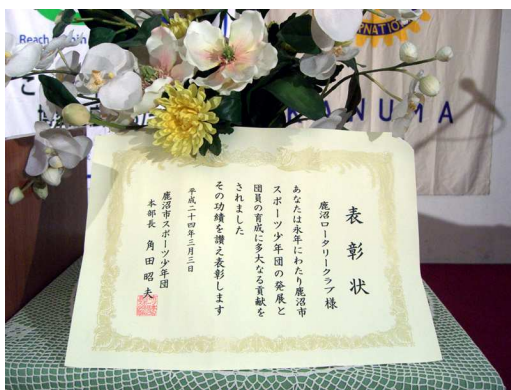 表彰状
鹿沼ロータリークラブ様
あなたは永年にわたり鹿沼市
スポーツ少年団の発展と
団員の育成に多大なる貢献を
されました
その功績を讃え表彰します
平成二十四年三月三日
鹿沼市スポーツ少年団
本部長 角田昭夫
Reach
KANUMA